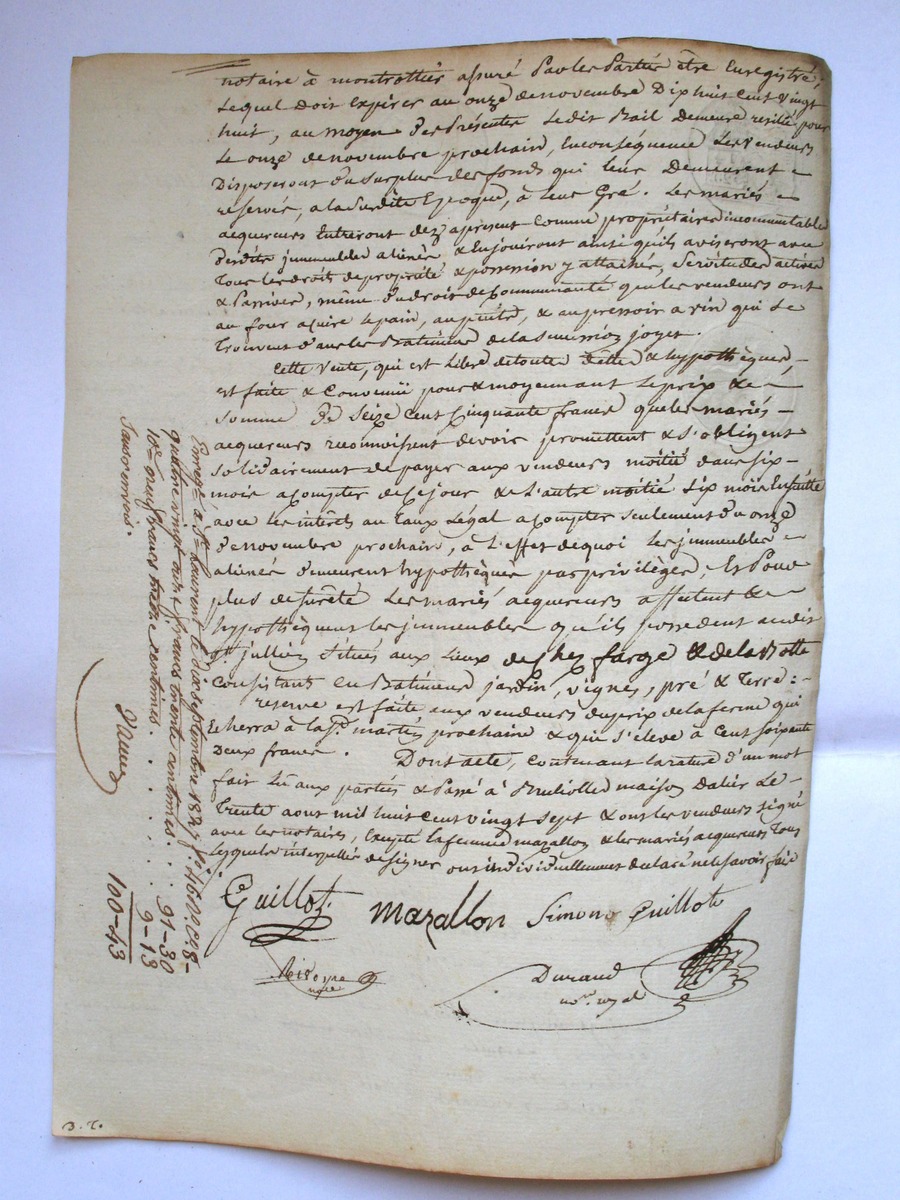 notaire à montrottier assuré par les Parties être Enregistré,
Lequel doit Expirer au onze de novembre Dix huit cent vingt
huit, au moyen des Présentes Ledit Bail Demeure resilié pour
Le onze de novembre prochain, En conséquence Les vendeurs
Disposeront du surplus des fonds qui leur Demeurent
reservés, a la susdite Epoque, à leur Gré. Les mariés
acquereurs Entreront dez apresent Comme propriétaires incommutables
Desdits jmmeubles alienés & En jouiront ainsi qu'ils aviseront avec
Tous les droits de propriété & possession y attachés, Servitudes actives
& Passives, même du droit de Communauté que les vendeurs ont
au four a cuire le pain, au puits, & au pressoir a vin qui se
Trouvent dans les Batimens de la
Cette Vente, qui est Libre de toutes Dettes & hypothèques,
est faite & Convenüe pour & moyennant Le prix &
Somme De Seize Cent Cinquante francs que les mariés
acquereurs reconnoissent devoir promettent & s'obligent
solidairement de payer aux vendeurs moitié dans six
mois a Compter de Ce jour & L'autre moitié six mois Ensuitte
avec les intérêts au Taux Légal a Compter seulement du onze
de novembre prochain, à L'effet de quoi Les jmmeubles
alienés demeurent hypothèqués par privilège, Et Pour
plus de sureté Les mariés acquereurs affectent &
hypothèquent les jmmeubles qu'ils possedent audit
St. jullien Situés aux Lieux de Chez farge & de la Botte
Consistant En Batimens jardin, vignes, pré & Terre :
reserve est faite aux vendeurs du prix de la ferme qui
Echerra à la St. martin prochaine & qui s'élève à Cent soixante
Deux francs. Dont acte, Contenant la rature d'un mot
fait Lu aux parties & Passé à maison dalier Le
Trente aout mil huit cent vingt sept & ont les vendeurs signé
avec les notaires, Excepté la femme mazallon & les mariés acquereurs Tous
Lesquels interpellés de signer ont individuellement declaré ne le savoir faire
Guillot. mazallon Simone Guillot
Durand
nore. royal
nore
Enregé. à St. Laurent le Dix septembre 1827 fo. 116
quatre vingt onze francs trente centimes. . . . 91-30
10e. neuf francs treize centimes. . . . . . 9-13
100-43
B. T.